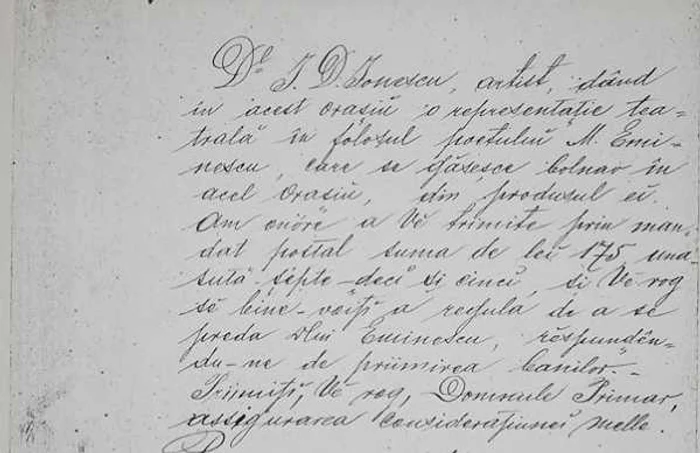 Dl. I. D. Ionescu, artist, dând
in acest orasiŭ o representatie tea=
trală in folosul poetuluiŭ M. Emi-
nescu, care se găsesce bolnav in
acel orasiŭ, din produsul ei.
Am onóre a Vĕ trimite prin man,
dat postal suma de lei 175, una-
sută-sépte-deci si cinci, si Vĕ rog
sĕ bine-voiți a regula de a se
preda Dlui Eminescu, rĕspundĕn-
du-ne de priimirea banilor.-
Priimiți, Vĕ rog, Domnule Primar,
assigurarea consideratiunei melle.